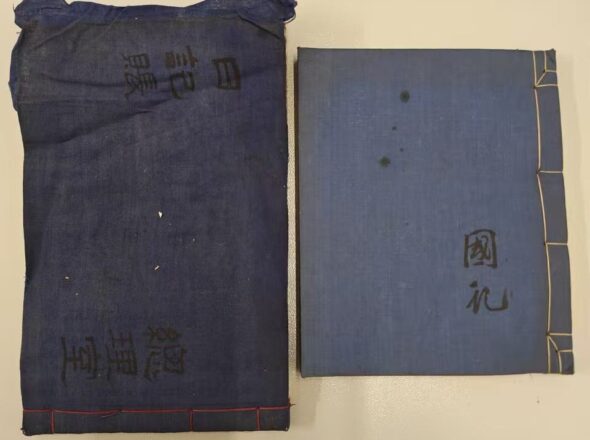 總理室
日記賬
國記